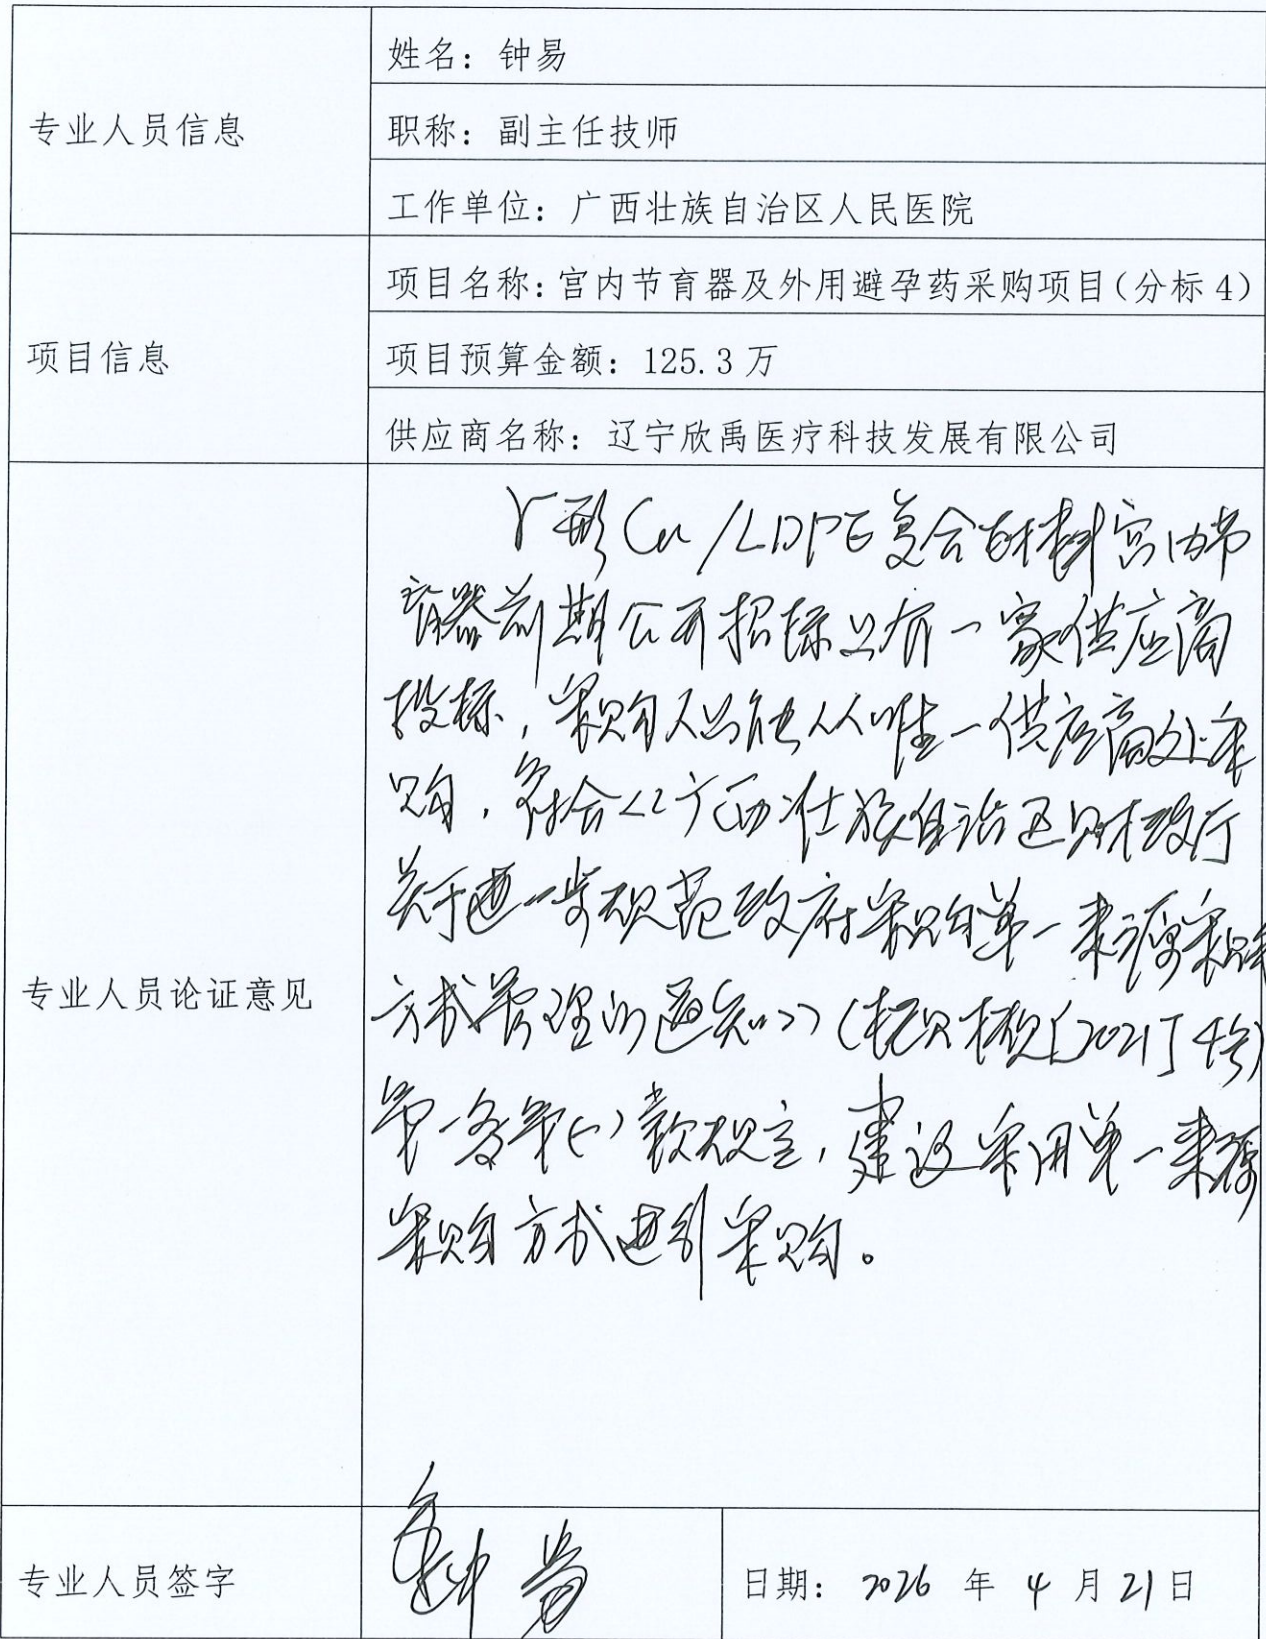 专业人员信息
姓名：钟易
职称：副主任技师
工作单位：广西壮族自治区人民医院
项目信息
项目名称：宫内节育器及外用避孕药采购项目（分标4）
项目预算金额：125.3万
供应商名称：辽宁欣禹医疗科技发展有限公司
专业人员论证意见
γ形Cu/LDPE复合材料宫内节
育器前期公开招标只有一家供应商
投标，采购人只能从唯一供应商处采
购，符合《广西壮族自治区财政厅
关于进一步规范政府采购单一来源采购
方式管理的通知》（桂财规〔2021〕4号）
第一条第(一)款规定，建议采用单一来源
采购方式进行采购。
专业人员签字
钟易
日期：2026年4月21日